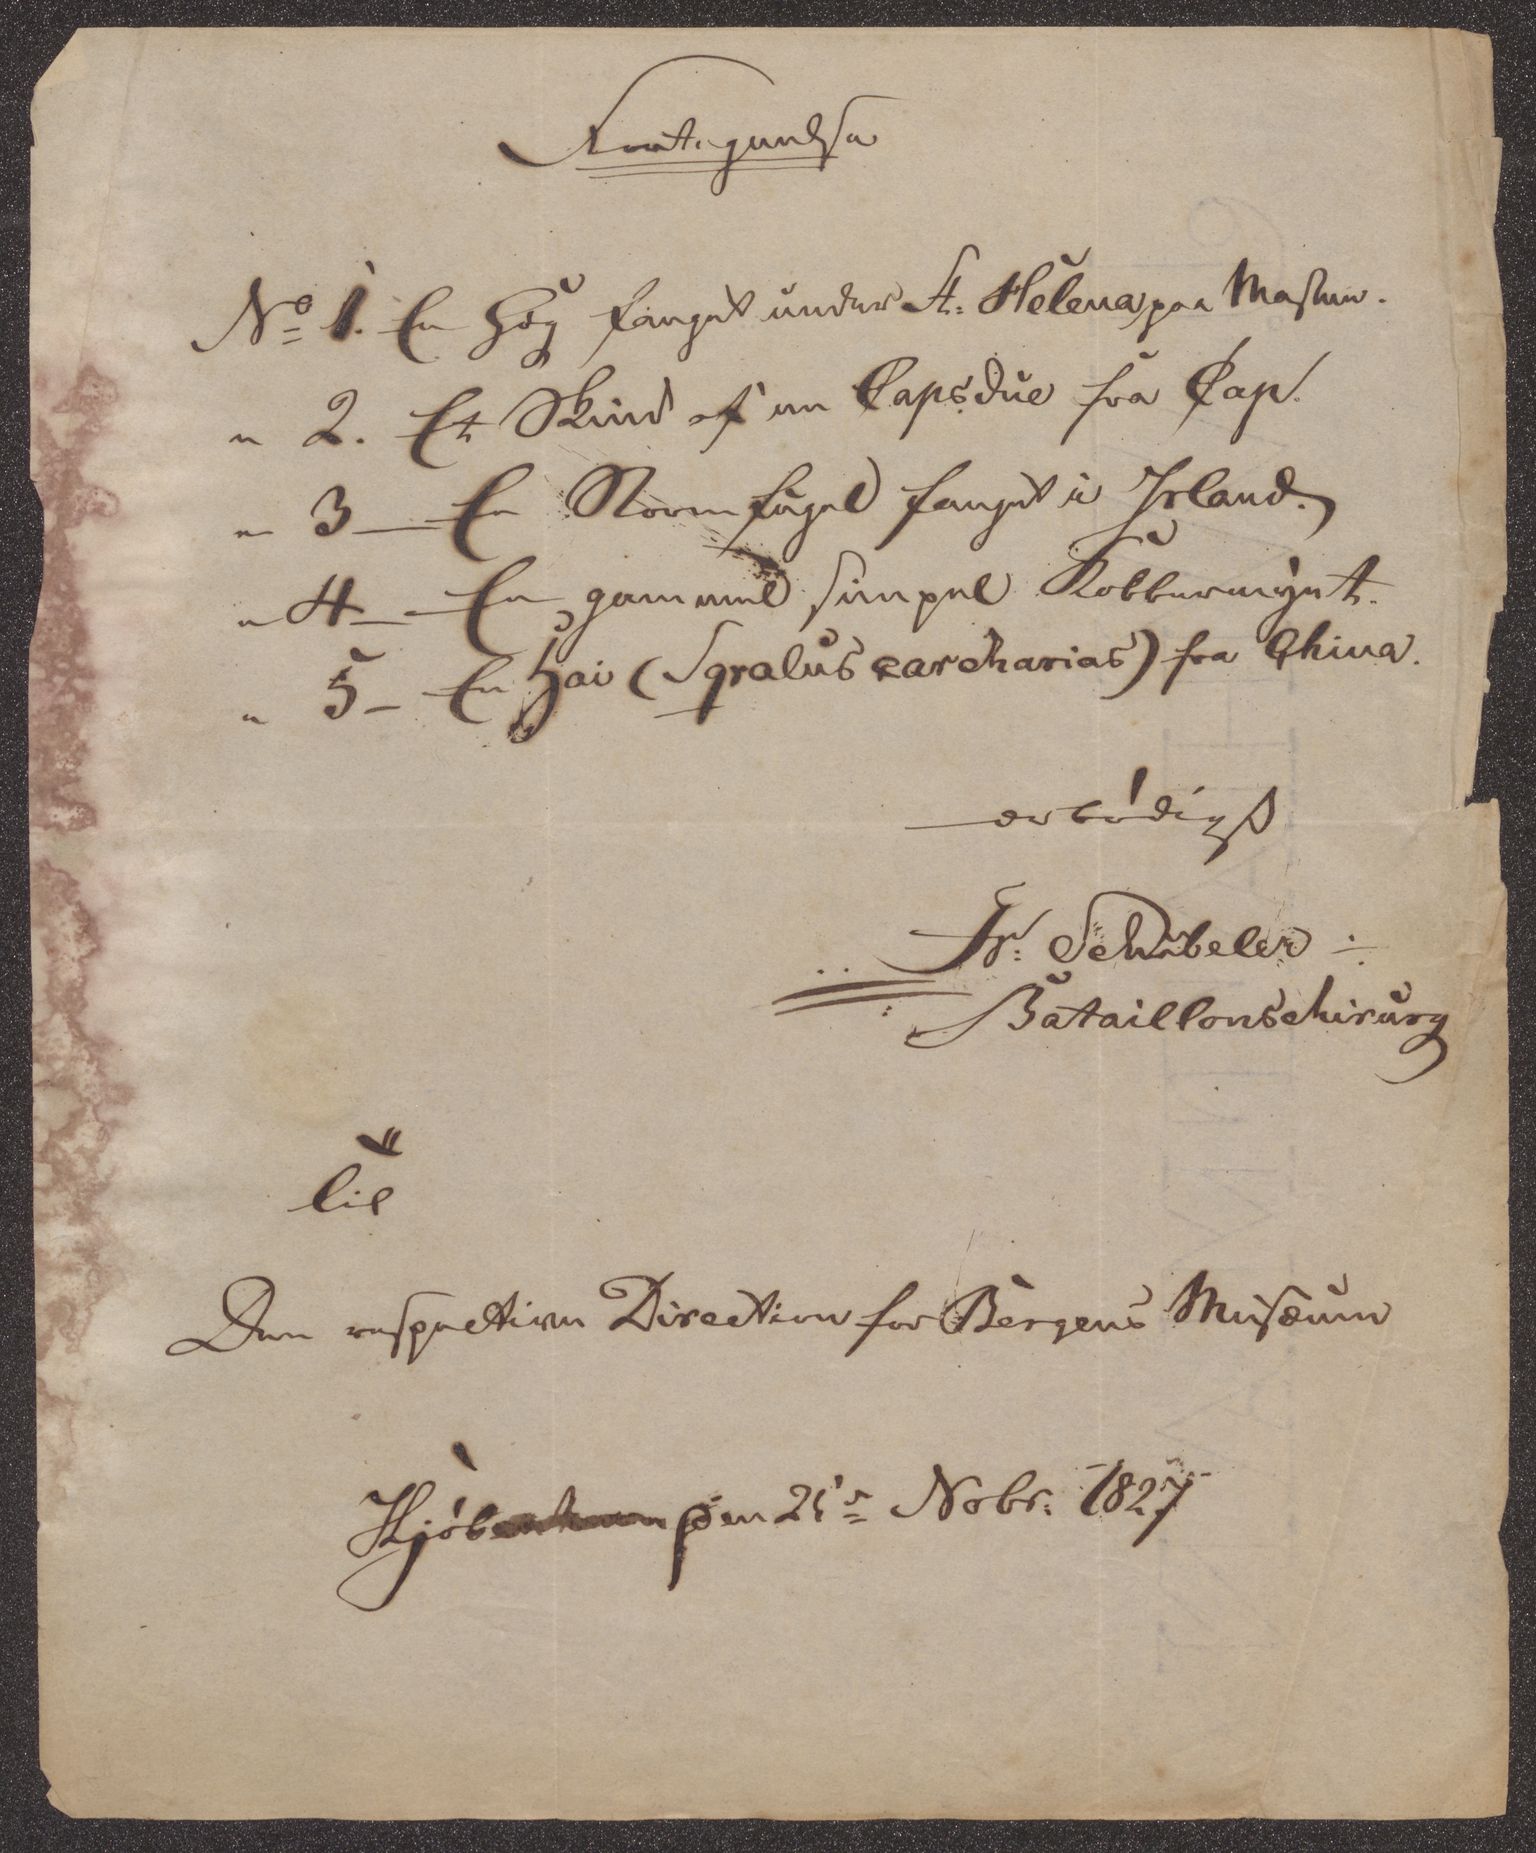 Fortegnelse
No 1. En Høg fanget under St: Helena paa Masten.
" 2. Et Skind af en Capsdue fra Cap.
" 3 – En Stormfugel fanget i Irland.
" 4 – En gammel simpel Kobbermynt.
" 5 – En Hai (Sqvalus carcharias) fra China.
ærbødigst
Fr: Schübeler
Bataillonschirurg
til
Den respective Direction for Bergens Musæum
Kjöbenhavn den Nobr: 1827